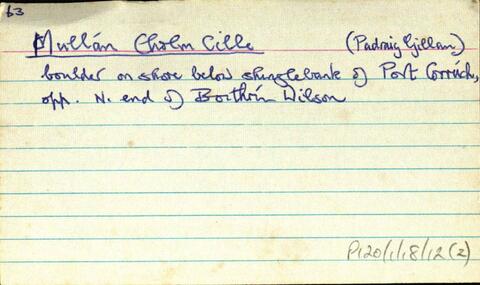 63
Mullán Cholm Cille (Padraig Gillan)
boulder on shore below shinglebank of Port Corrúch,
opp. N. end of Bóithrín Wilson
P120/1/18/12(2)